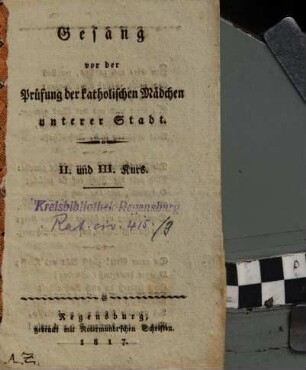 Gesang
vor der
Prüfung der katholischen Mädchen
unterer Stadt.
II. und III. Kurs.
Kreisbibliothek Regensburg
Rat. civ. 415/9
Regensburg,
gedruckt mit Rotermundt'schen Schriften.
1817.
A.Z.